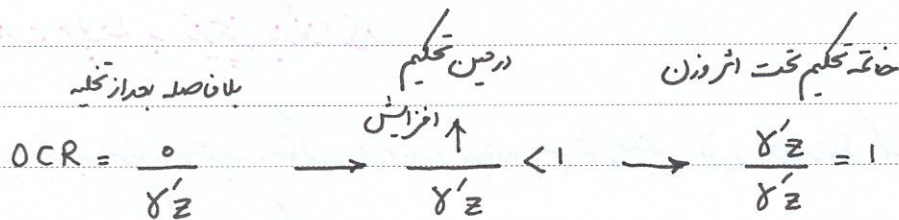 بلافاصله بعد از تخلیه
در حین تحکیم
خاتمه تحکیم تحت اثر وزن
افزایش ↑
OCR = 0/γ'z → ↑/γ'z < 1 → γ'z/γ'z = 1